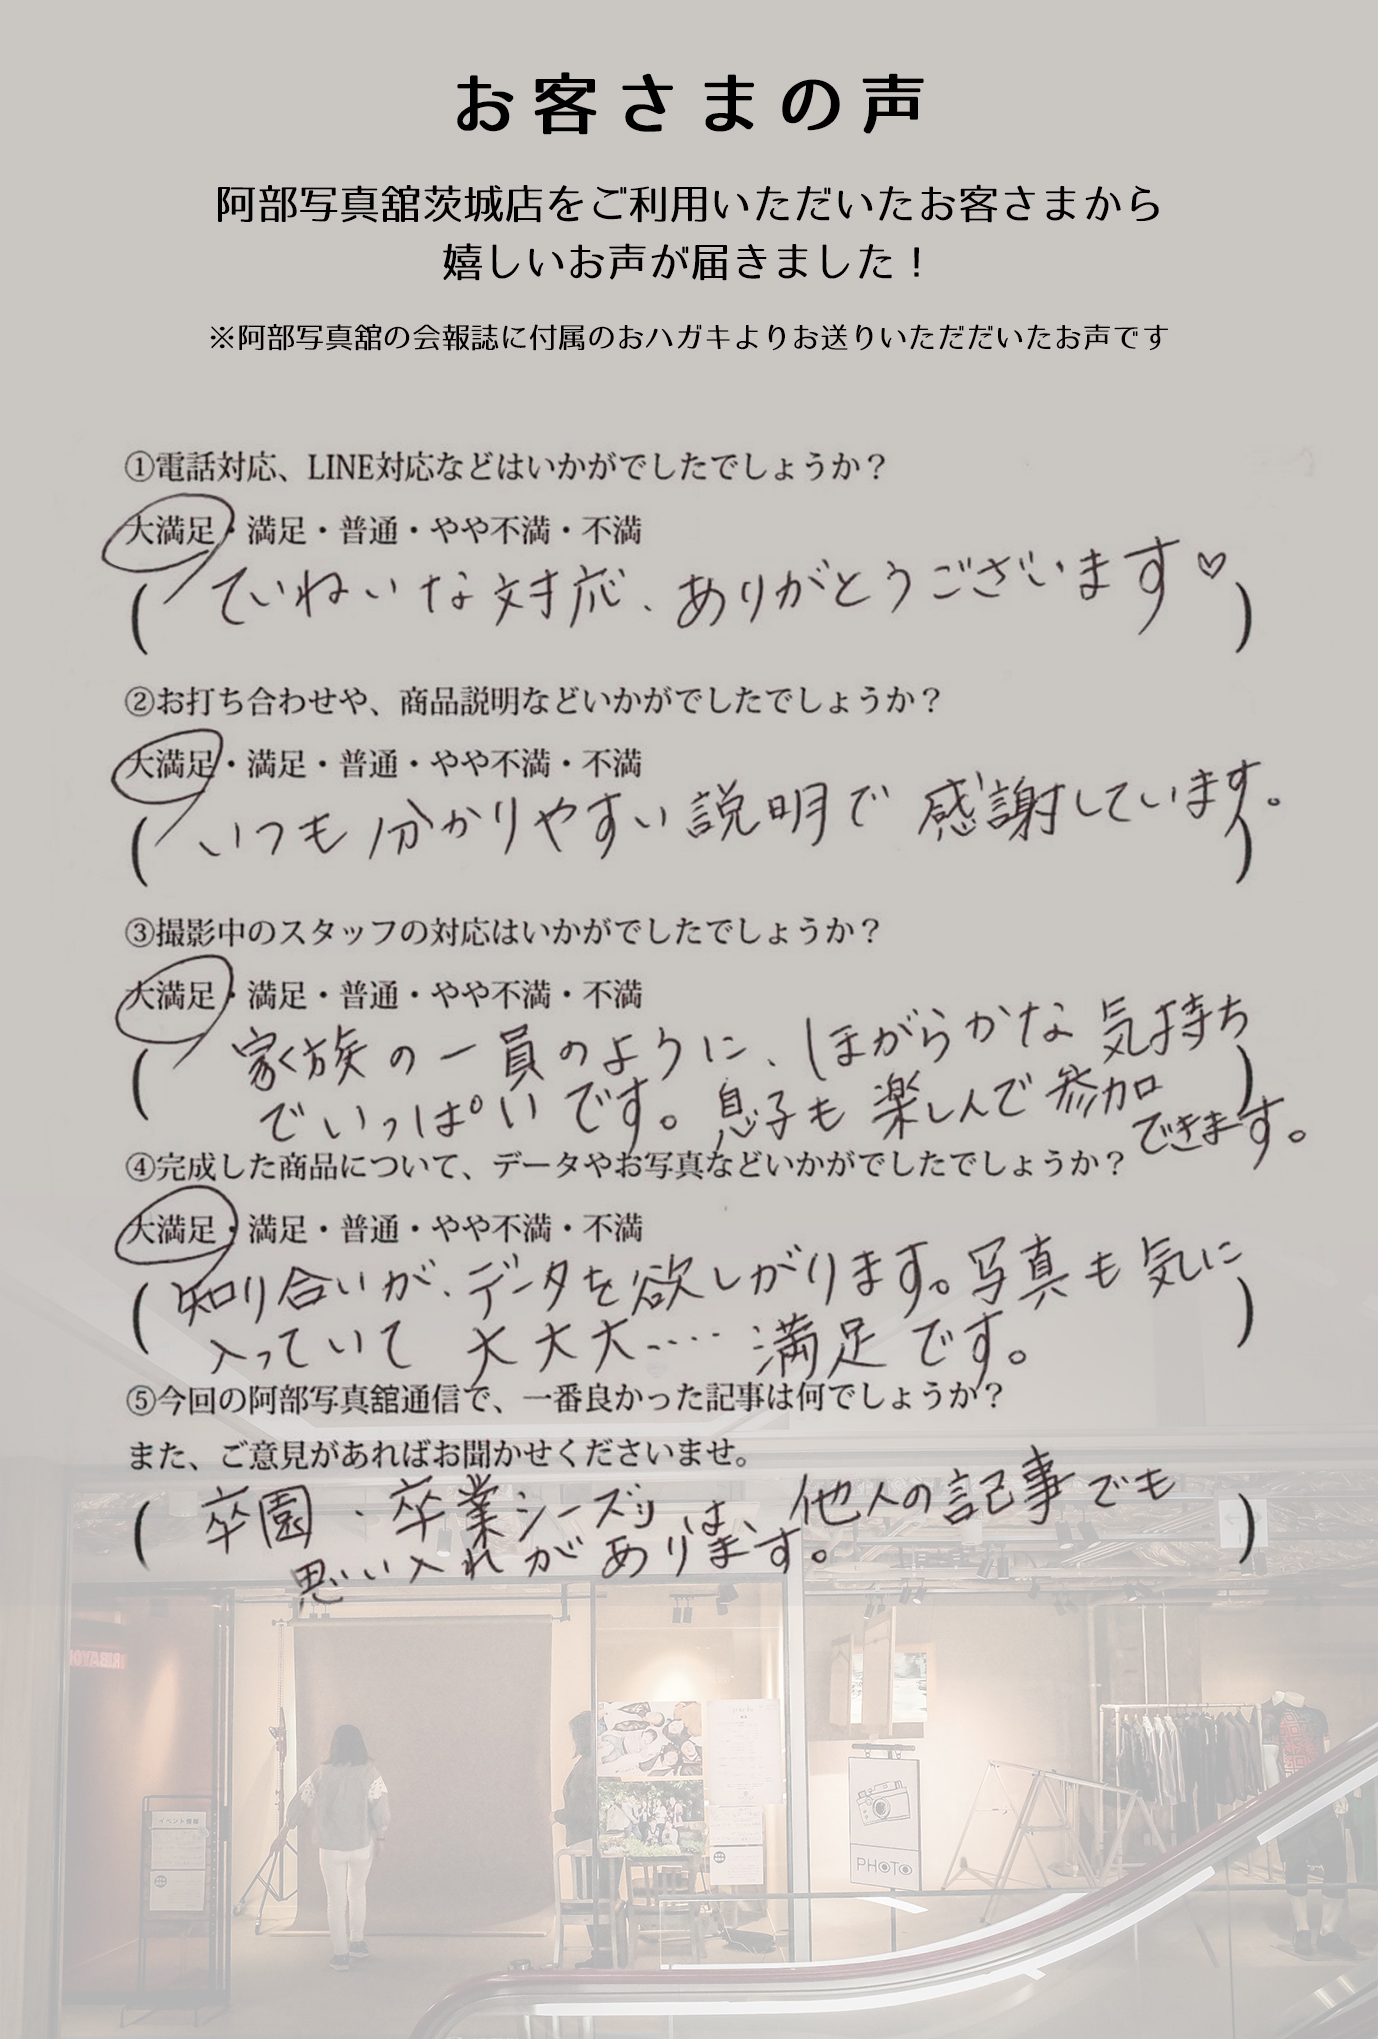 お客さまの声
阿部写真舘茨城店をご利用いただいたお客さまから
嬉しいお声が届きました!
※阿部写真舘の会報誌に付属のおハガキよりお送りいただだいたお声です
①電話対応、LINE対応などはいかがでしたでしょうか?
大満足・満足・普通・やや不満・不満
(ていねいな対応、ありがとうございます♡)
②お打ち合わせや、商品説明などいかがでしたでしょうか?
大満足・満足・普通・やや不満・不満
(いつも分かりやすい説明で感謝しています。)
③撮影中のスタッフの対応はいかがでしたでしょうか?
大満足・満足・普通・やや不満・不満
(家族の一員のように、ほがらかな気持ち
でいっぱいです。息子も楽しんで参加
できます。)
④完成した商品について、データやお写真などいかがでしたでしょうか?
大満足・満足・普通・やや不満・不満
(知り合いが、データを欲しがります。写真も気に
入っていて 大大大…‥満足です。)
⑤今回の阿部写真舘通信で、一番良かった記事は何でしょうか?
また、ご意見があればお聞かせくださいませ。
(卒園・卒業シーズンは、他人の記事でも
思い入れがあります。)
イベント情報
PHOTO